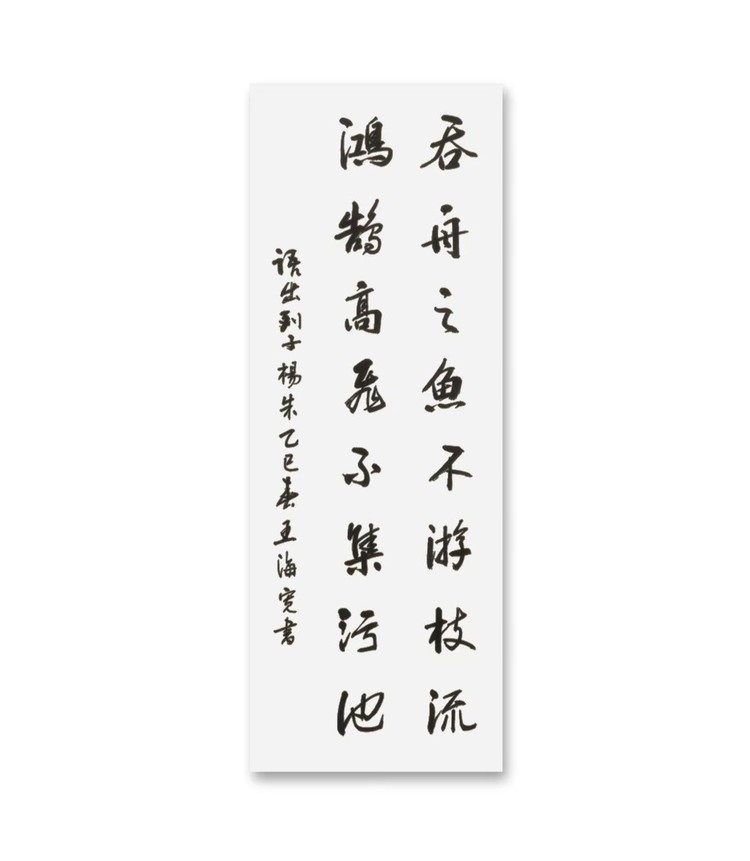 吞舟之魚不游枝流
鴻鹄高飛不集污池
语出列子楊朱乙巳春王海宽書